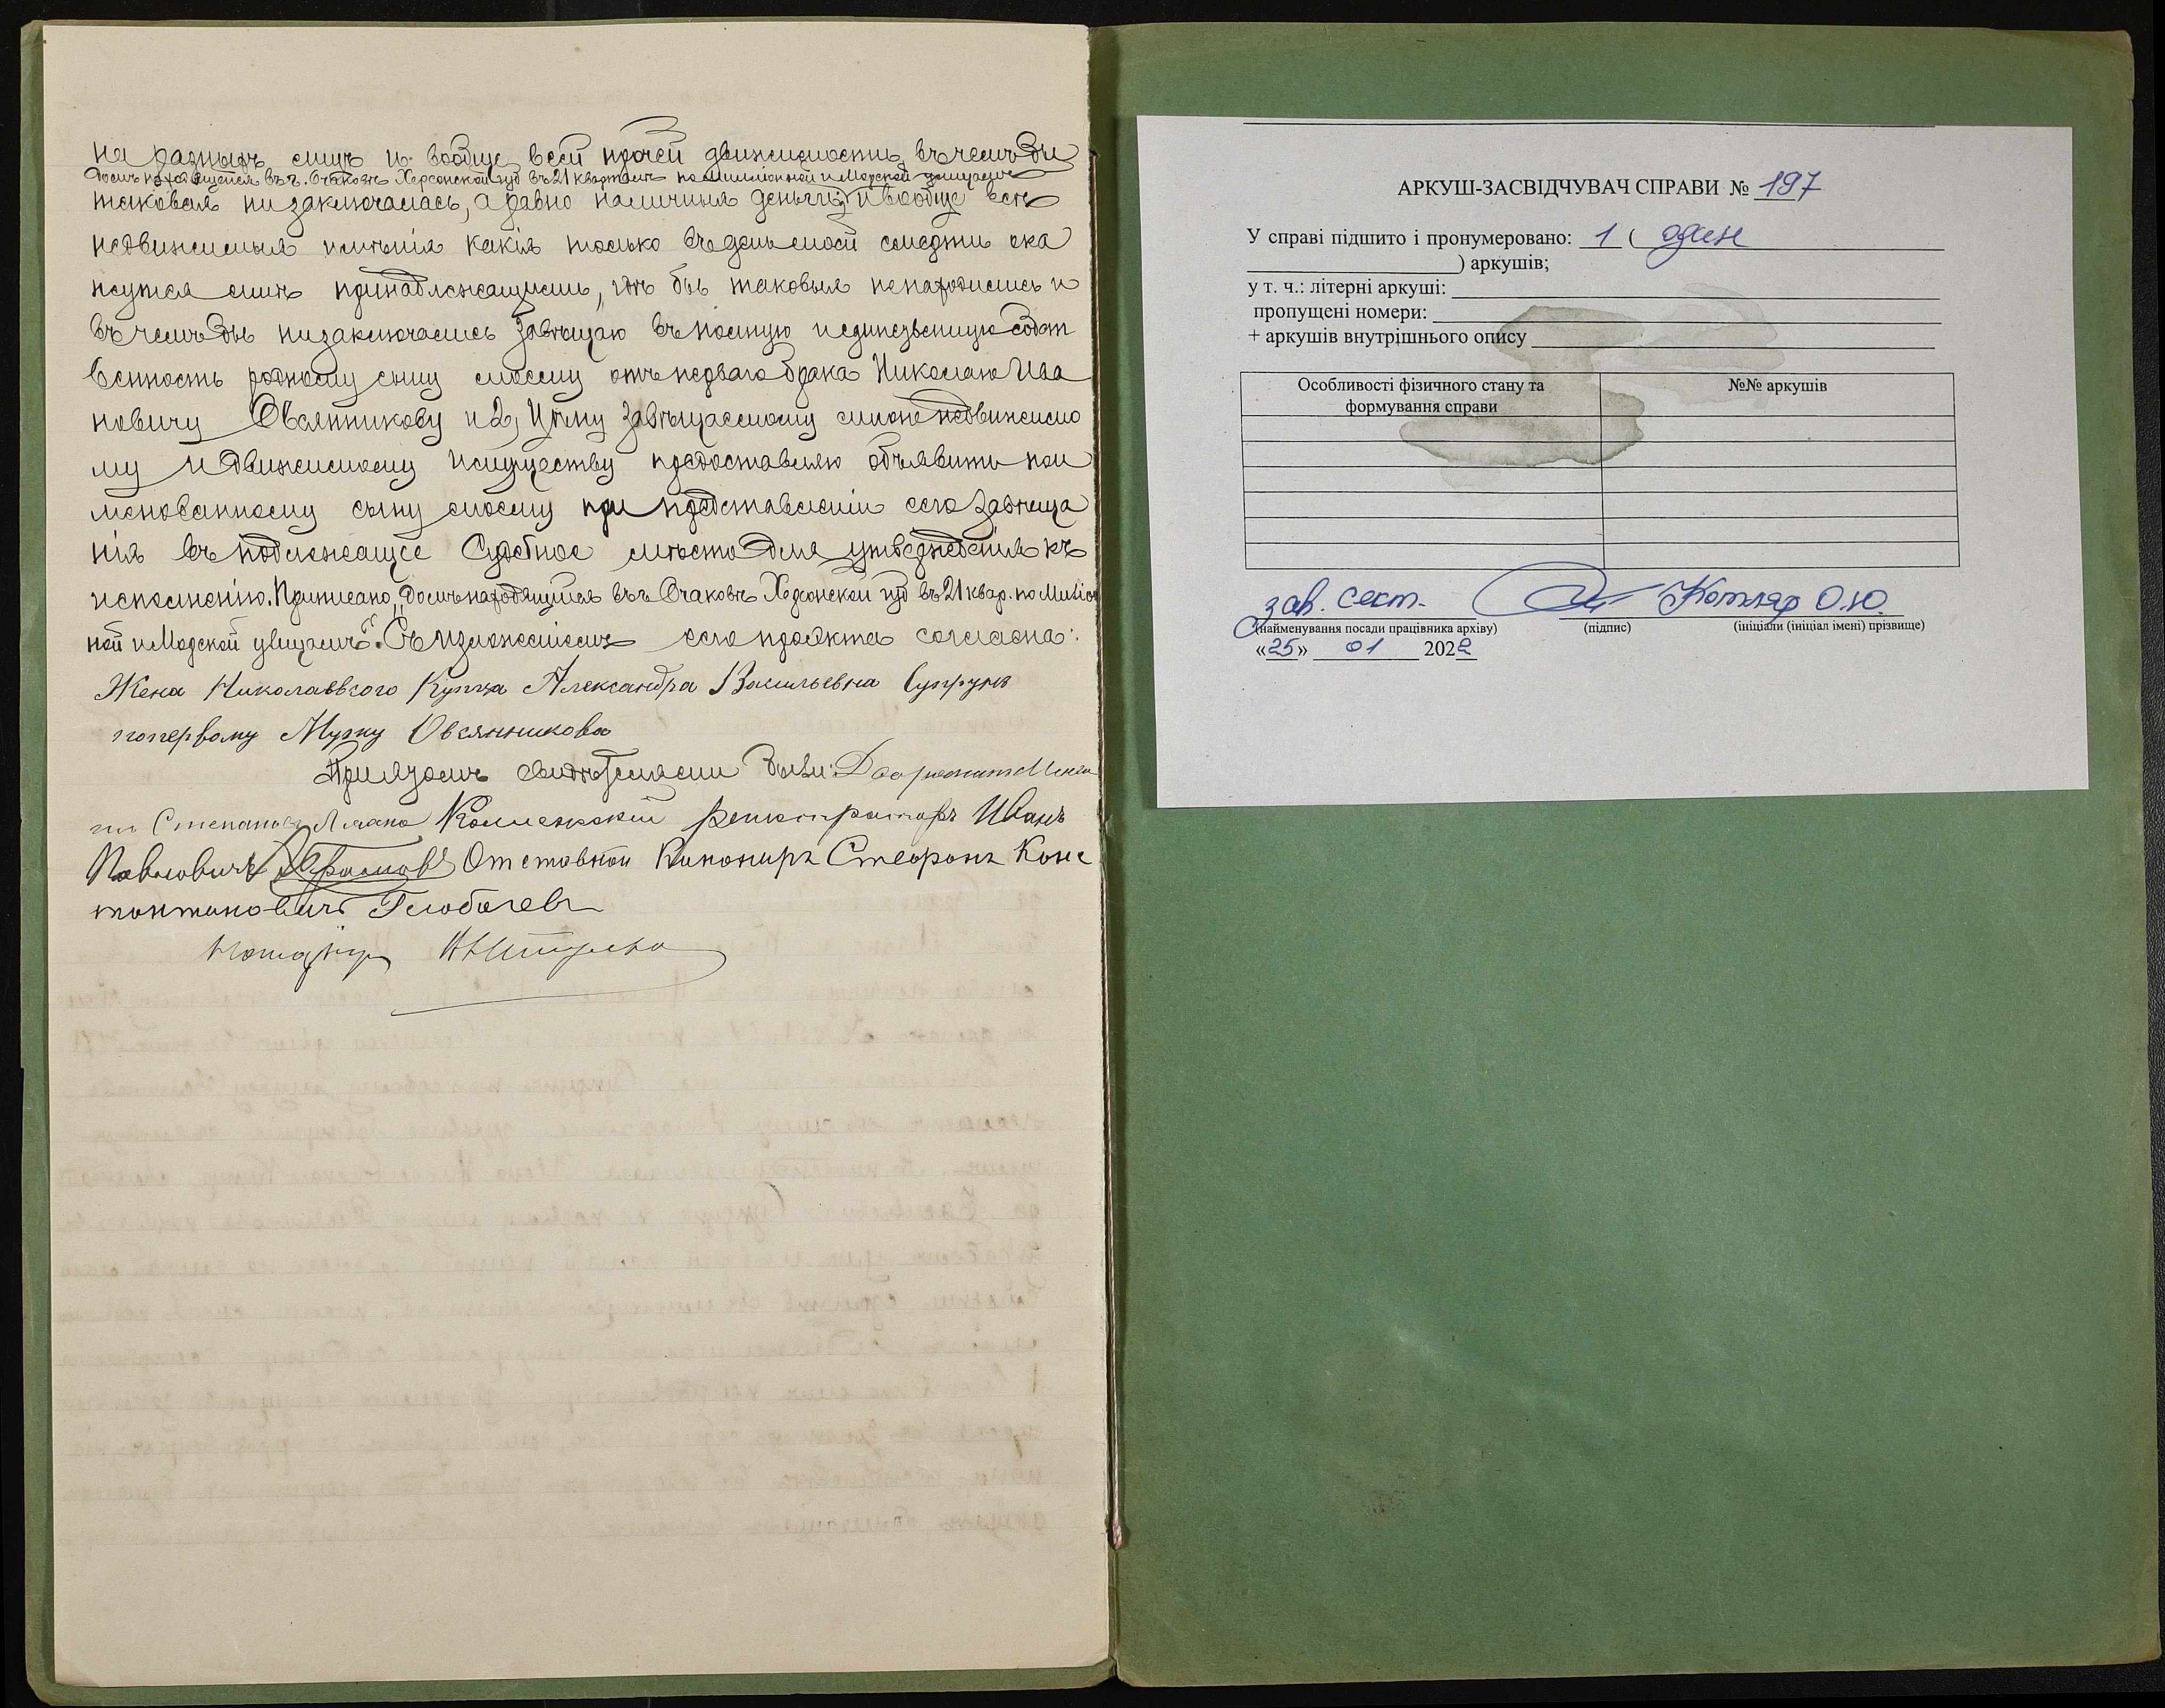 на разныхъ лицъ и вообще всей прочей движимости, въ чемъ бы
домъ находящійся въ г. Очаковѣ Херсонской губ въ 21 кварталѣ по Милліонной и Морской улицамъ
таковая ни заключалась, а равно наличныя деньги; и вообще всѣ
недвижимыя имѣнія какія только въ день моей смерти ока
жутся мнѣ принадлежащими, гдѣ бы таковыя ненаходились и
въ чемъ бы низаключались завѣщаю въ полную и единственную собст
венность родному сыну моему отъ перваго брака Николаю Ива
новичу Овсянникову и 2, Цѣну завѣщаемому мною недвижимо
му и движимому имуществу предоставляю объявить пои
менованному сыну моему при представленіи сего завѣща
нія въ подлежащее Судебное мѣсто для утвержденія къ
исполненію. Приписано „домъ находящійся въ г. Очаковѣ Херсонской губ въ 21 квар. по Миліон
ной и Морской улицамъ". Съ изложеніемъ сего проэкта согласна:
Жена Николаевского Купца Александра Васильевна Супрунъ
поперьвому Мужу Овсянникова
При семъ свидѣтелями были:
Степановъ Коллежскій регистраторъ Иванъ
Павловичъ Отставной Канониръ Стефанъ Конс
тантиновичъ Глобачевъ
Нотаріусъ
АРКУШ-ЗАСВІДЧУВАЧ СПРАВИ № 197
У справі підшито і пронумеровано: 1 ( один
) аркушів;
у т. ч.: літерні аркуші:
пропущені номери:
+ аркушів внутрішнього опису
Особливості фізичного стану та формування справи №№ аркушів
зав. сект. Котляр О.Ю.
(найменування посади працівника архіву) (підпис) (ініціали (ініціал імені) прізвище)
«25» 01 2022